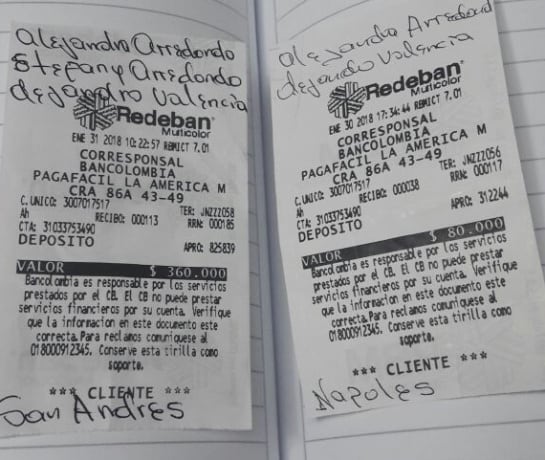 Alejandro Arredondo
Stefany Arredondo
Alejandro Valencia
Redeban
Multicolor
ENE 31 2018 10:22:57 RBMICT 7.01
CORRESPONSAL
BANCOLOMBIA
PAGAFACIL LA AMERICA M
CRA 86A 43-49
C.UNICO: 3007017517 TER: JNZZ2058
Ah RECIBO: 000113 RRN: 000185
CTA: 31033753490
DEPOSITO APRO: 825839
VALOR $ 360.000
Bancolombia es responsable por los servicios
prestados por el CB. El CB no puede prestar
servicios financieros por su cuenta. Verifique
que la informacion en este documento este
correcta. Para reclamos comuniquese al
018000912345. Conserve esta tirilla como
soporte.
*** CLIENTE ***
San Andres
Alejandro Arredond
Alejandro Valencia
Redeban
Multicolor
ENE 30 2018 17:34:44 RBMICT 7.01
CORRESPONSAL
BANCOLOMBIA
PAGAFACIL LA AMERICA M
CRA 86A 43-49
C.UNICO: 3007017517 TER: JNZZ2056
Ah RECIBO: 000038 RRN: 000117
CTA: 31033753490
DEPOSITO APRO: 312244
VALOR $ 80.000
Bancolombia es responsable por los servicios
prestados por el CB. El CB no puede prestar
servicios financieros por su cuenta. Verifique
que la informacion en este documento este
correcta. Para reclamos comuniquese al
018000912345. Conserve esta tirilla como
soporte.
*** CLIENTE ***
Napoles